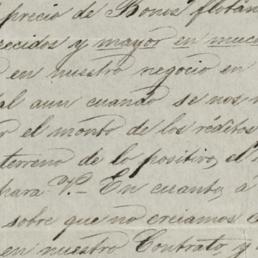 precio de Bonos flotan
ecidos y mayor en muc
en nuestro negocio en
al aun cuando se nos
el monto de los réditos
terreno de lo positivo, el
para Vd. En cuanto, a
sobre que no creiamos
en nuestro Contrato, y